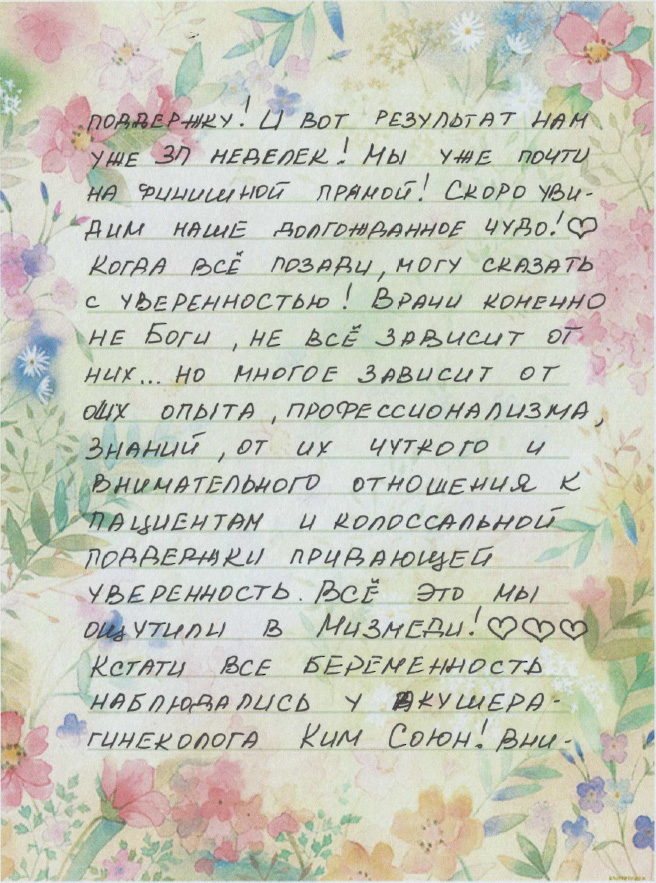 ПОДДЕРЖКУ! И ВОТ РЕЗУЛЬТАТ НАМ
УЖЕ 37 НЕДЕЛЕК! МЫ УЖЕ ПОЧТИ
НА ФИНИШНОЙ ПРЯМОЙ! СКОРО УВИ-
ДИМ НАШЕ ДОЛГОЖДАННОЕ ЧУДО!♡
КОГДА ВСЁ ПОЗАДИ, МОГУ СКАЗАТЬ
С УВЕРЕННОСТЬЮ! ВРАЧИ КОНЕЧНО
НЕ БОГИ, НЕ ВСЁ ЗАВИСИТ ОТ
НИХ... НО МНОГОЕ ЗАВИСИТ ОТ
ИХ ОПЫТА, ПРОФЕССИОНАЛИЗМА,
ЗНАНИЙ, ОТ ИХ ЧУТКОГО И
ВНИМАТЕЛЬНОГО ОТНОШЕНИЯ К
ПАЦИЕНТАМ И КОЛОССАЛЬНОЙ
ПОДДЕРЖКИ ПРИДАЮЩЕЙ
УВЕРЕННОСТЬ. ВСЁ ЭТО МЫ
ОЩУТИЛИ В МИЗМЕДИ!♡♡♡
КСТАТИ ВСЕ БЕРЕМЕННОСТЬ
НАБЛЮДАЛИСЬ У АКУШЕРА-
ГИНЕКОЛОГА КИМ СОЮН! ВНИ-